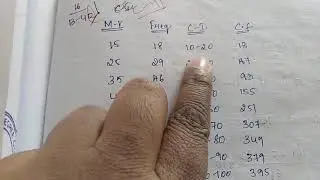 M.V Freq C.I C.F
15 18 10-20 18
25 29 47
35 46 93
155
251
70 307
80 349
-90 379
-100 395